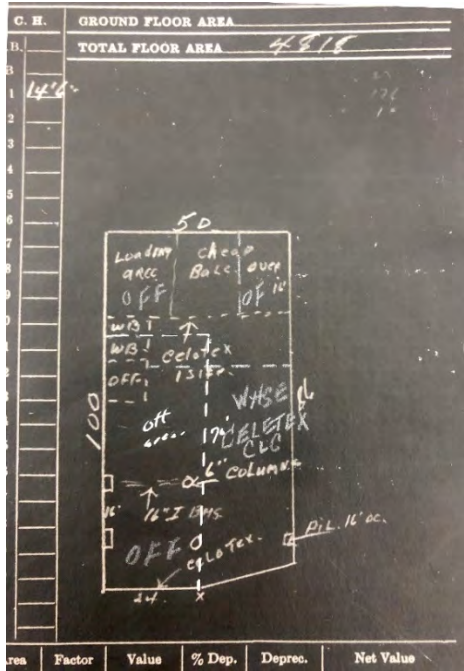 C. H. GROUND FLOOR AREA
B. TOTAL FLOOR AREA 4818
B
1 14'6"
2
3
4
5
6
7
8
9
50
Loading Cheap over
area Balc.
OFF OF 16'
WB
WB Celotex
OFF.
100
off
area 176'
WHSE
CELOTEX
CLG
6" COLUMNS
16' 16" I BMS.
OFF CELOTEX.
PIL. 16' OC.
24
x
Area Factor Value % Dep. Deprec. Net Value